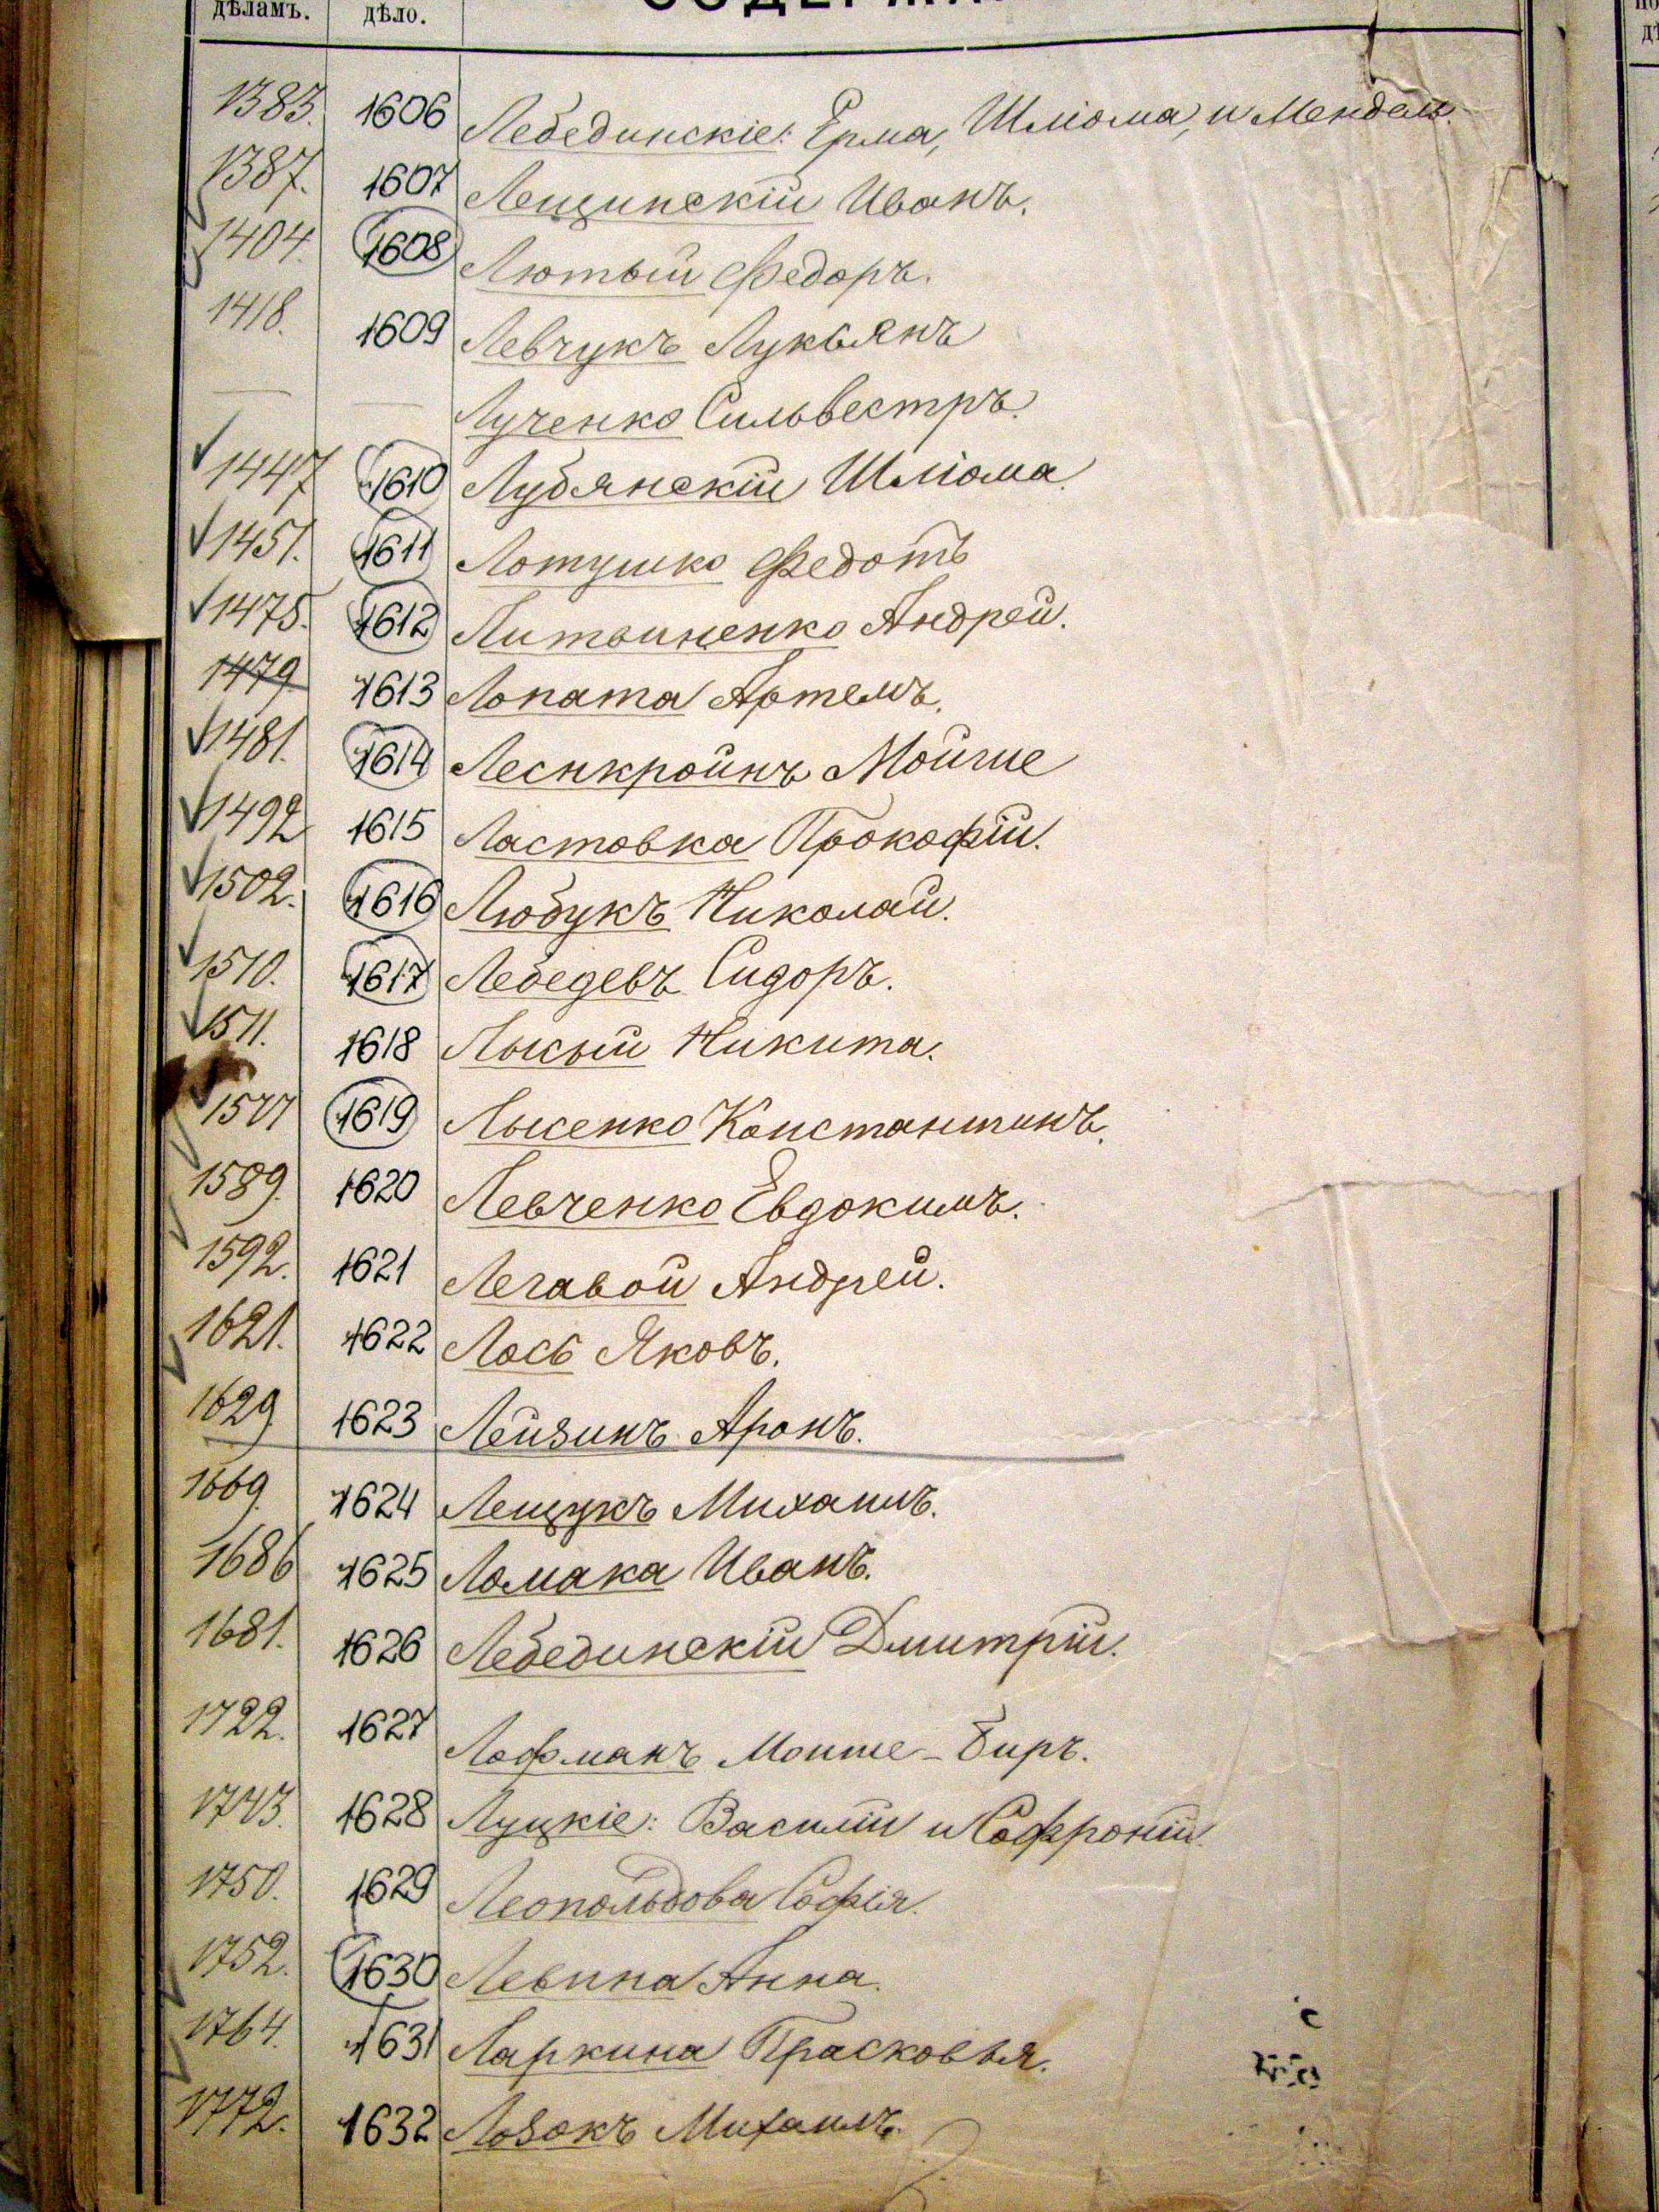 дѣламъ. дѣло.
1383. 1606 Лебединскіе: Ерма, Шліома, и Мендель.
1387. 1607 Лещинскій Иванъ.
1404. 1608 Лютый Федоръ.
1418. 1609 Левчукъ Лукьянъ
— — Лученко Сильвестръ.
1447 1610 Лубянскій Шліома.
1451. 1611 Лотушко Федотъ
1475. 1612 Литвиненко Андрей.
1479 1613 Лопата Артемъ.
1481. 1614 Леснкройнъ Мойше
1492 1615 Ластовка Прокофій.
1502. 1616 Любукъ Николай.
1510. 1617 Лебедевъ Сидоръ.
1511. 1618 Лысый Никита.
1619 Лысенко Константинъ.
1589. 1620 Левченко Евдокимъ.
1592. 1621 Легавой Андрей.
1621. 1622 Лось Яковъ.
1629 1623 Лейзинъ Аронъ.
1669. 1624 Лещукъ Михаилъ.
1686 1625 Ломака Иванъ.
1681. 1626 Лебединскій Дмитрій.
1722. 1627 Лофманъ Моише-Биръ.
1743. 1628 Луцкіе: Василій и Софроній.
1750. 1629 Леопольдова Софія.
1752. 1630 Левина Анна.
1764. 1631 Ларкина Прасковья.
1772. 1632 Лозокъ Михаилъ.